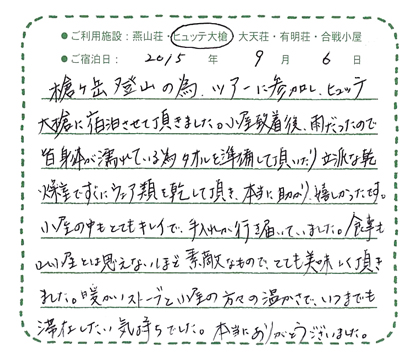 ● ご利用施設：燕山荘・ヒュッテ大槍・大天荘・有明荘・合戦小屋
● ご宿泊日： 2015 年 9 月 6 日
槍ヶ岳登山の為、ツアーに参加し、ヒュッテ
大槍に宿泊させて頂きました。小屋到着後、雨だったので
皆身体が濡れている為タオルを準備して頂いたり立派な乾
燥室ですぐにウェア類を乾して頂き、本当に助かり、嬉しかったです。
小屋の中もとてもキレイで、手入れが行き届いていました。食事も
山小屋とは思えないほど素敵なもので、とても美味しく頂き
ました。暖かいストーブと小屋の方々の温かさで、いつまでも
滞在したい気持ちでした。本当にありがとうございました。